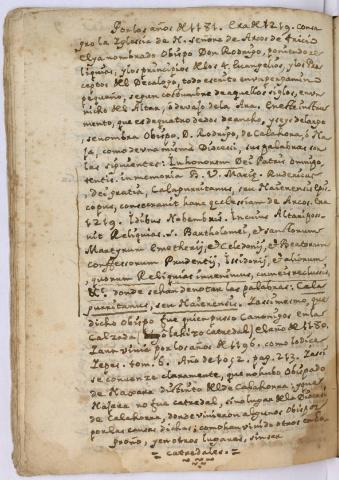 Por los años de 1181. Era de 1219. consa-
gro la Iglesia de N. Señora de Arcos de Tricio
el ya nombrado Obispo Don Rodrigo, poniendo re-
liquias, y los principios de los 4. Evangelios, y los Pre
ceptos del Decalogo, todo escrito en un pergamino
pequeño, segun costumbre de aquellos siglos, en un
nicho del Altar, ò devajo de la Ara. En este instru
mento, que es de quatro dedos de ancho, y seys de largo
se nombra Obispo. D. Rodrigo, de Calahorra, ò Na
jera, como de una misma Diocesi, sus palabras son
las siguientes: In honorem Dei Patris omnipo
tentis. in memoria B. V. Mariæ. Rudericus
dei gratia, Calagurritanus, seu Naierensis Epis
copus, consecravit hanc ecclesiam de Arcos. Era
1219. Idibus Nobembris. In cuius Altari posu
it Reliquias. S. Bartholomei, et sanctorum
Martyrum Emetherij, et Celedonij, et Beatorum
Confessorum Prudentij, Isidorij, et aliorum,
quorum Reliquias invenimus, cum eis reclussis,
&c. donde se han de notar las palabras: Cala
gurritanus, seu Naierensis. Y assimismo, que
dicho Obispo fue quien puso Canonigos en la
Calzada y la hizo Catedral el año de 1180.
Y aun vivia por los años de 1196. como lo dice
Yepes. tom. 6. Año de 1052. pag. 213. Y assi
se convence claramente, que no hubo Obispado
de Naxara distinto del de Calahorra: y que
Najera no fue catredal, sino lugar de la Diocesi
de Calahorra, donde vivieron algunos Obispos
por las causas dichas: como han vivido otros en Lo
groño, y en otros lugares, sin ser
catredales.